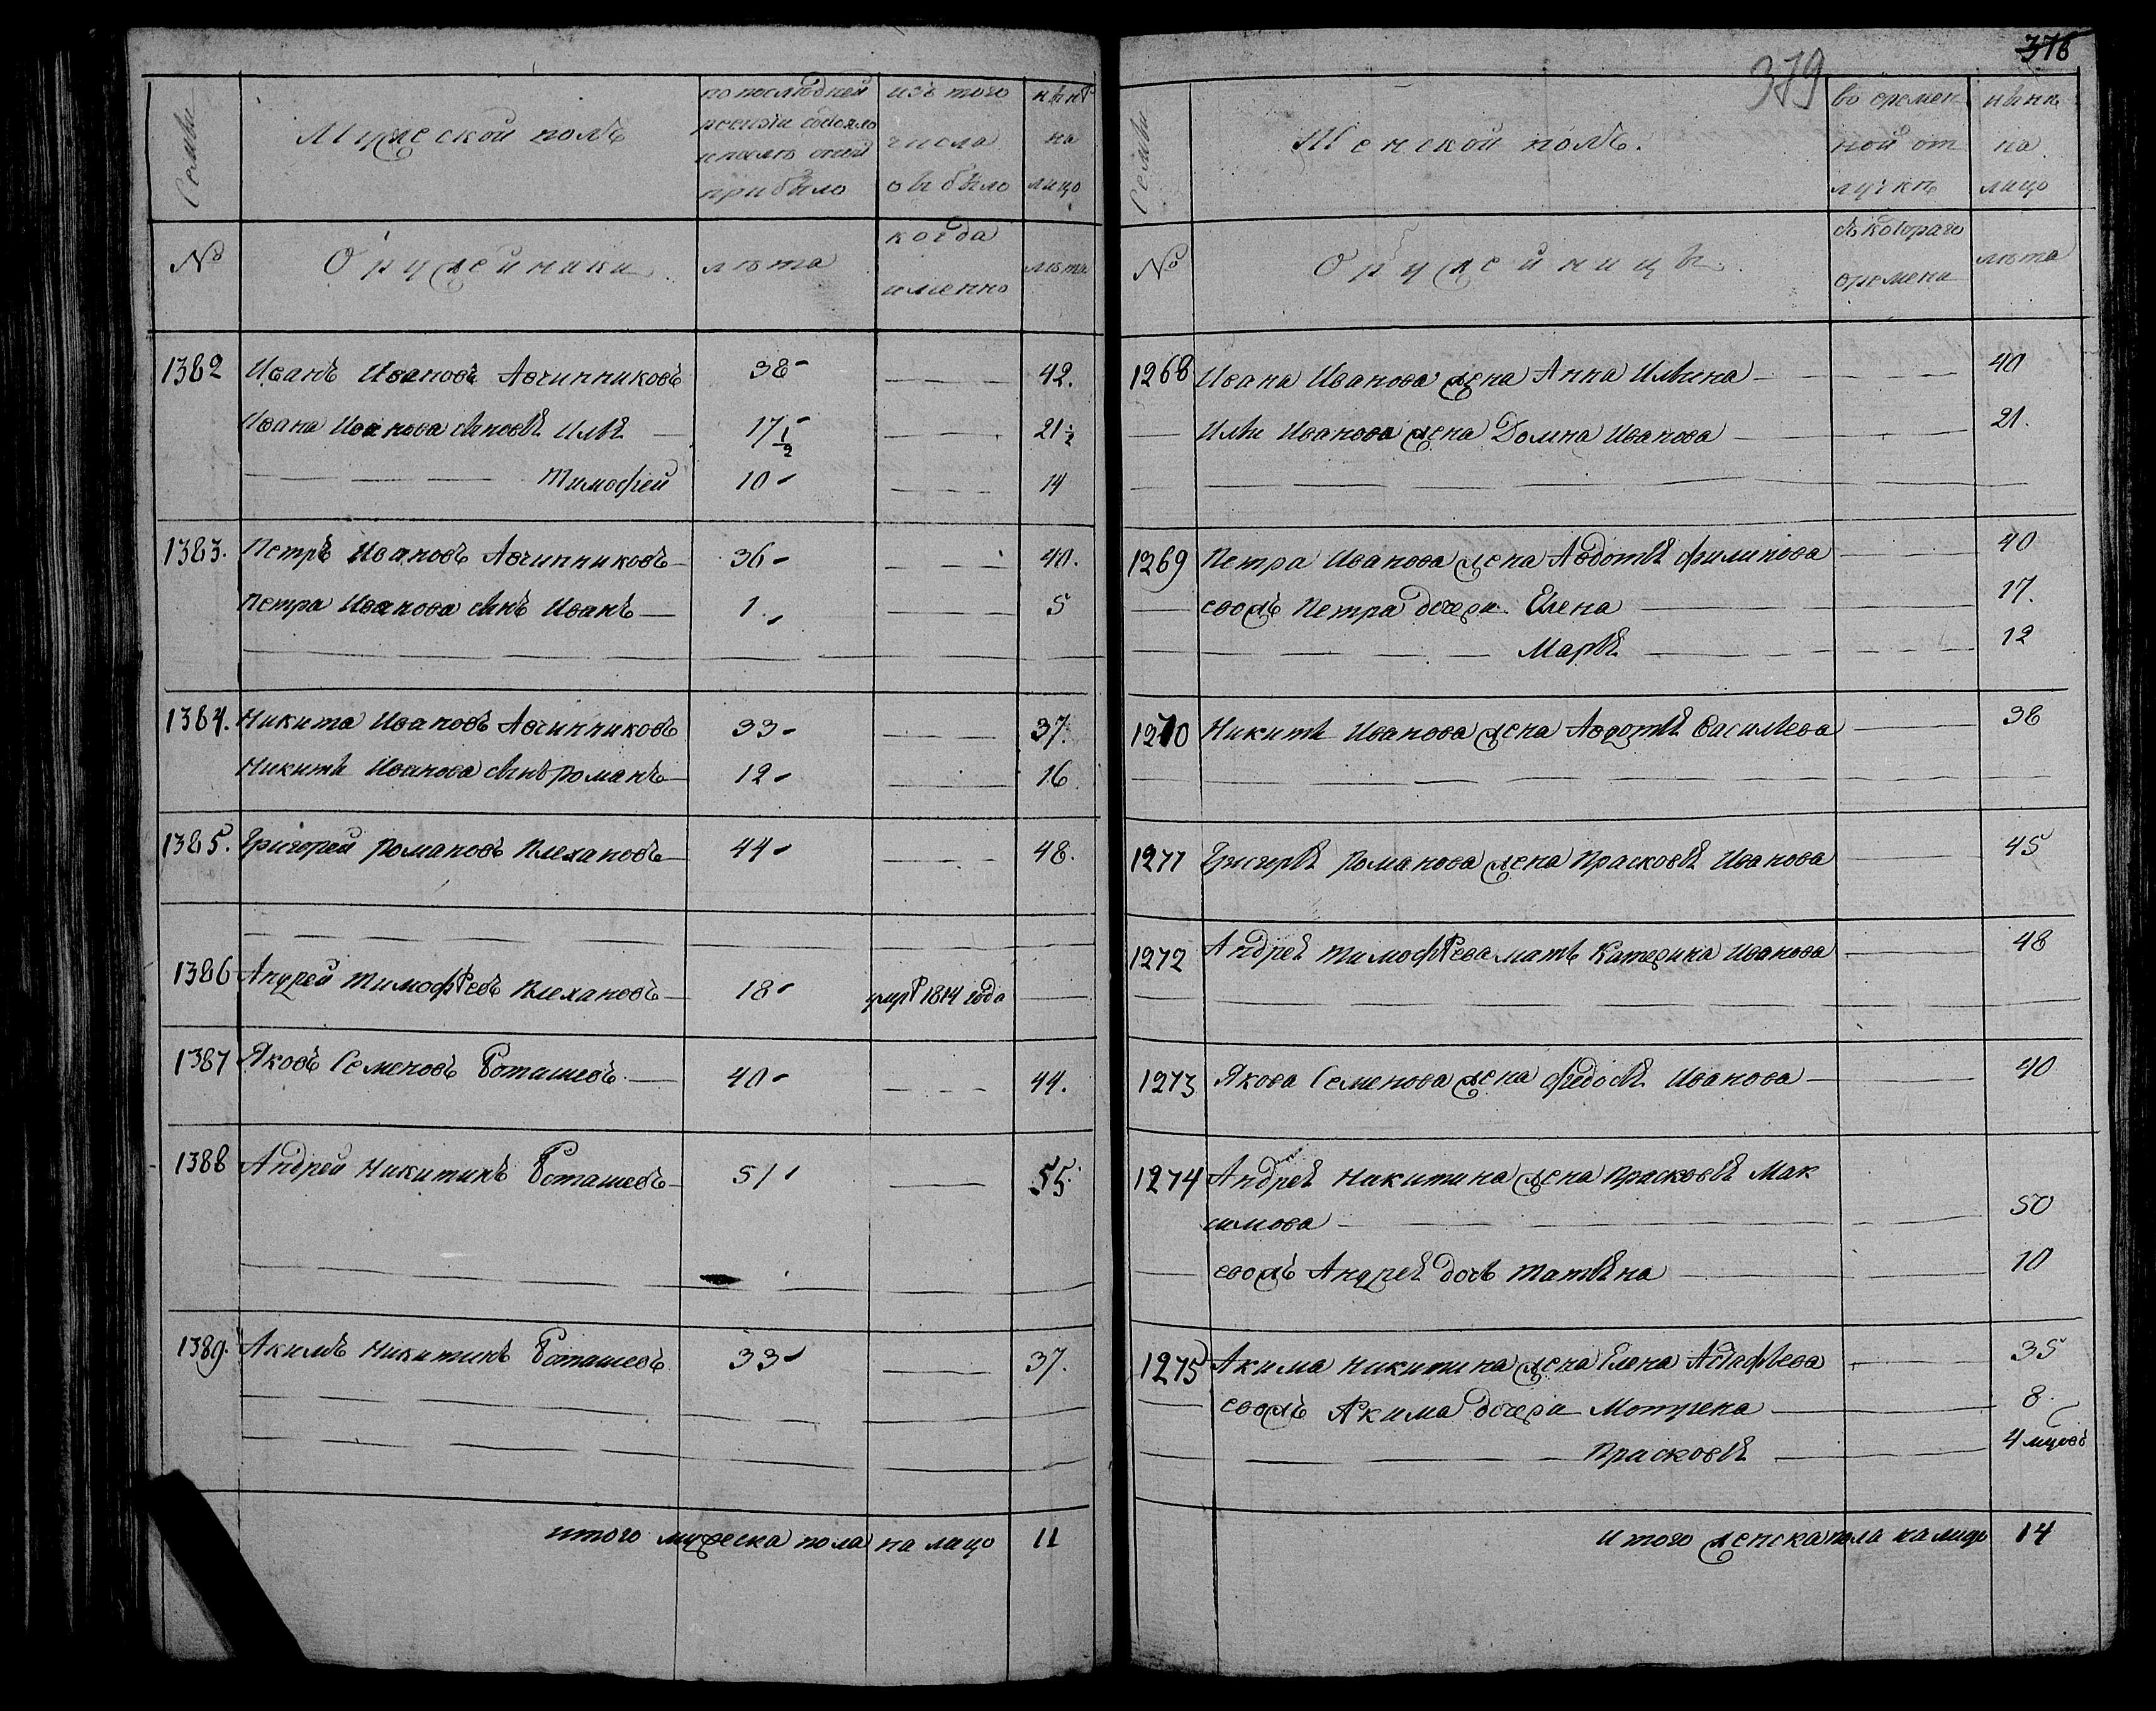 Семьи
Мужеской полъ
по последней
ревизіи состояло
и после оной
прибыло
изъ того
числа
выбыло
нынѣ
на
лицо
№
Оружейники
лета
когда
именно
лета
1382 Иванъ Ивановъ Авчинниковъ 38 42.
Ивана Иванова сыновья Илья 17 1/2 21 1/2
Тимофей 10 14
1383. Петръ Ивановъ Авчинниковъ 36 40.
Петра Иванова сынъ Иванъ 1. 5
1384. Никита Ивановъ Авчинниковъ 33 37.
Никиты Иванова сынъ Романъ 12 16.
1385. Григорей Романовъ Плехановъ 44 48.
1386 Андрей Тимофѣевъ Плехановъ 18 умрѣ 1814 года
1387 Яковъ Семеновъ 40 44.
1388 Андрей Никитинъ 51 55.
1389. Акимъ Никитинъ 33 37.
итого мужеска пола на лицо 11
376
379
Семьи
Женской полъ.
во времен
ной от
лучке
ныне
на
лицо
№
Оружейницы.
съ котораго
времена
лета
1268 Ивана Иванова жена Анна Ильина 40
Ильи Иванова жена Домна Иванова 21.
1269 Петра Иванова жена Авдотья Филипова 40
ево жъ Петра дочери Елена 17.
Марья 12
1270 Никиты Иванова жена Авдотья Васильева 38
1271 Григорья Романова жена Прасковья Иванова 45
1272 Андрея Тимофѣева мать Катерина Иванова 48
1273 Якова Семенова жена Федосья Иванова 40
1274 Андрея Никитина жена Прасковья Мак
симова 50
ево жъ Андрея дочь Татьяна 10
1275 Акима Никитина жена Елена Астафьева 35
ево жъ Акима дочери Мотрена 8.
Прасковья 4 мцовъ
итого женска пола на лицо 14